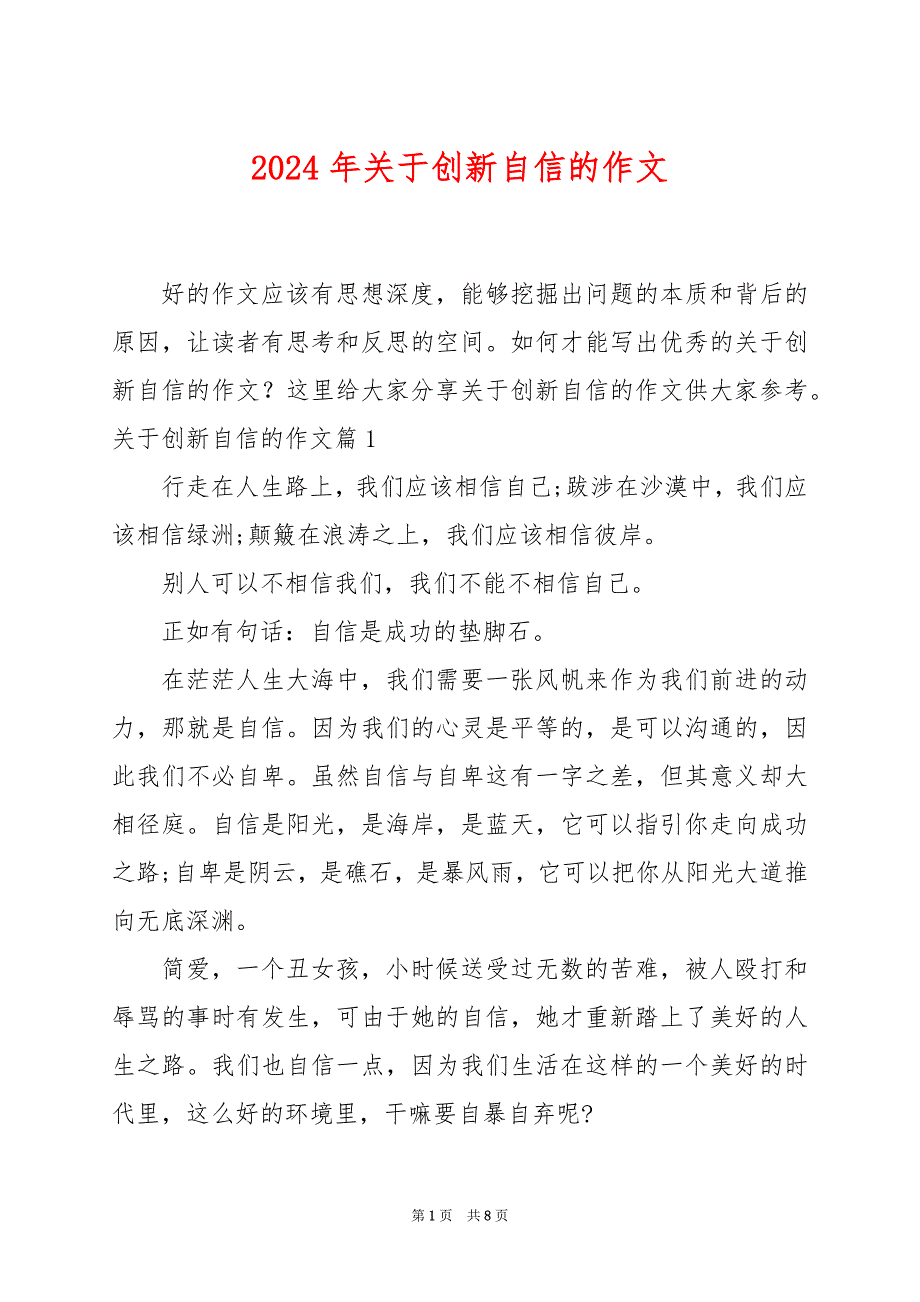 2024 年关于创新自信的作文
好的作文应该有思想深度，能够挖掘出问题的本质和背后的
原因，让读者有思考和反思的空间。如何才能写出优秀的关于创
新自信的作文？这里给大家分享关于创新自信的作文供大家参考。
关于创新自信的作文篇 1
行走在人生路上，我们应该相信自己;跋涉在沙漠中，我们应
该相信绿洲;颠簸在浪涛之上，我们应该相信彼岸。
别人可以不相信我们，我们不能不相信自己。
正如有句话：自信是成功的垫脚石。
在茫茫人生大海中，我们需要一张风帆来作为我们前进的动
力，那就是自信。因为我们的心灵是平等的，是可以沟通的，因
此我们不必自卑。虽然自信与自卑这有一字之差，但其意义却大
相径庭。自信是阳光，是海岸，是蓝天，它可以指引你走向成功
之路;自卑是阴云，是礁石，是暴风雨，它可以把你从阳光大道推
向无底深渊。
简爱，一个丑女孩，小时候送受过无数的苦难，被人殴打和
辱骂的事时有发生，可由于她的自信，她才重新踏上了美好的人
生之路。我们也自信一点，因为我们生活在这样的一个美好的时
代里，这么好的环境里，干嘛要自暴自弃呢?
第 1 页 共 8 页